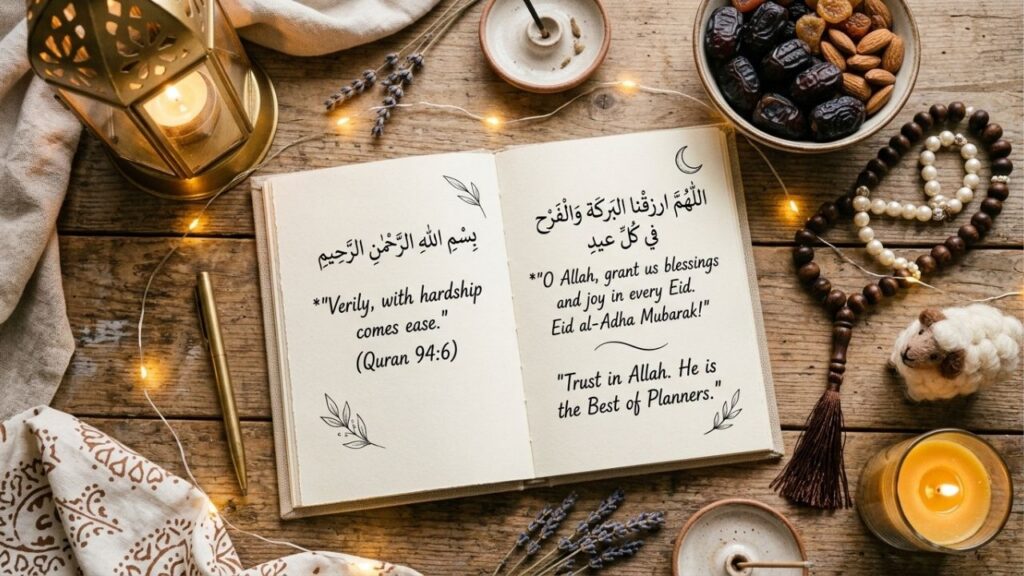 بِسْمِ اللهِ الرَّحْمٰنِ الرَّحِيمِ
*"Verily, with hardship
comes ease."
(Quran 94:6)
اللّٰهُمَّ ارزقْنا البَركَة وَالْفَرْح
في كُلِّ عيدِ
*"O Allah, grant us blessings
and joy in every Eid.
Eid al-Adha Mubarak!"
"Trust in Allah. He is
the Best of Planners."